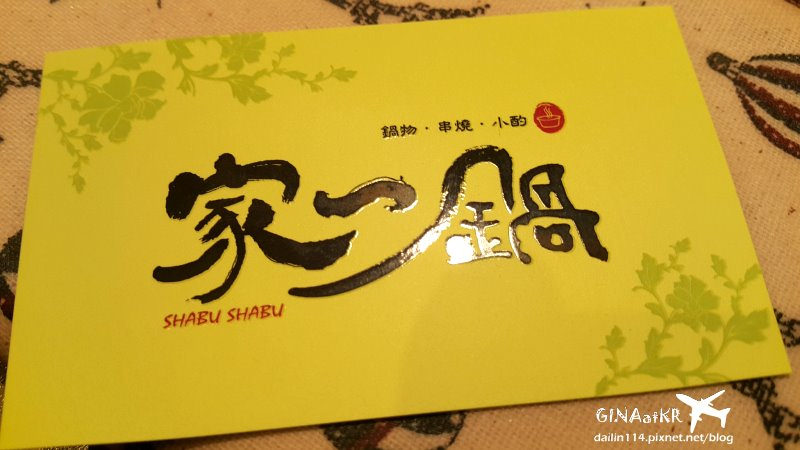 鍋物・串燒・小酌
家一鍋
SHABU SHABU
GINAatKR
dailin114.pixnet.net/blog